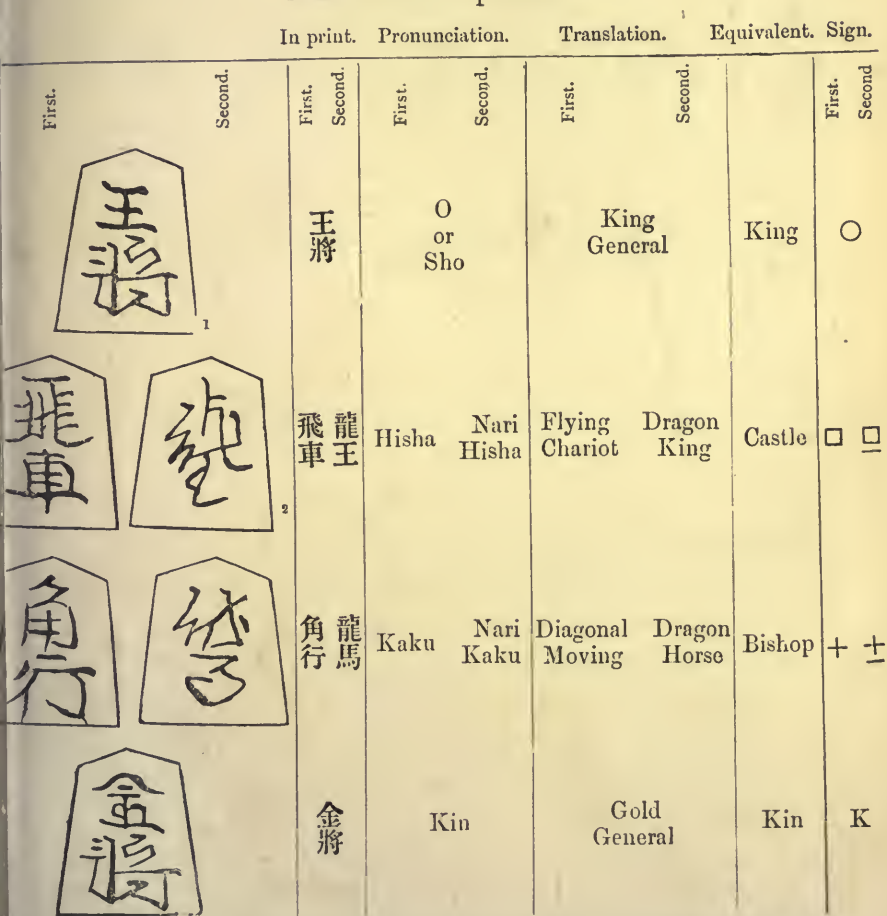 In print. Pronunciation. Translation. Equivalent. Sign.
First. Second. First. Second. First. Second. First. Second. First. Second
王將
1
王將
O
or
Sho
King
General
King
○
飛車
2
飛車 龍王
Hisha
Nari
Hisha
Flying
Chariot
Dragon
King
Castle
□ □
角行
角行 龍馬
Kaku
Nari
Kaku
Diagonal
Moving
Dragon
Horse
Bishop
+ +
金將
金將
Kin
Gold
General
Kin
K